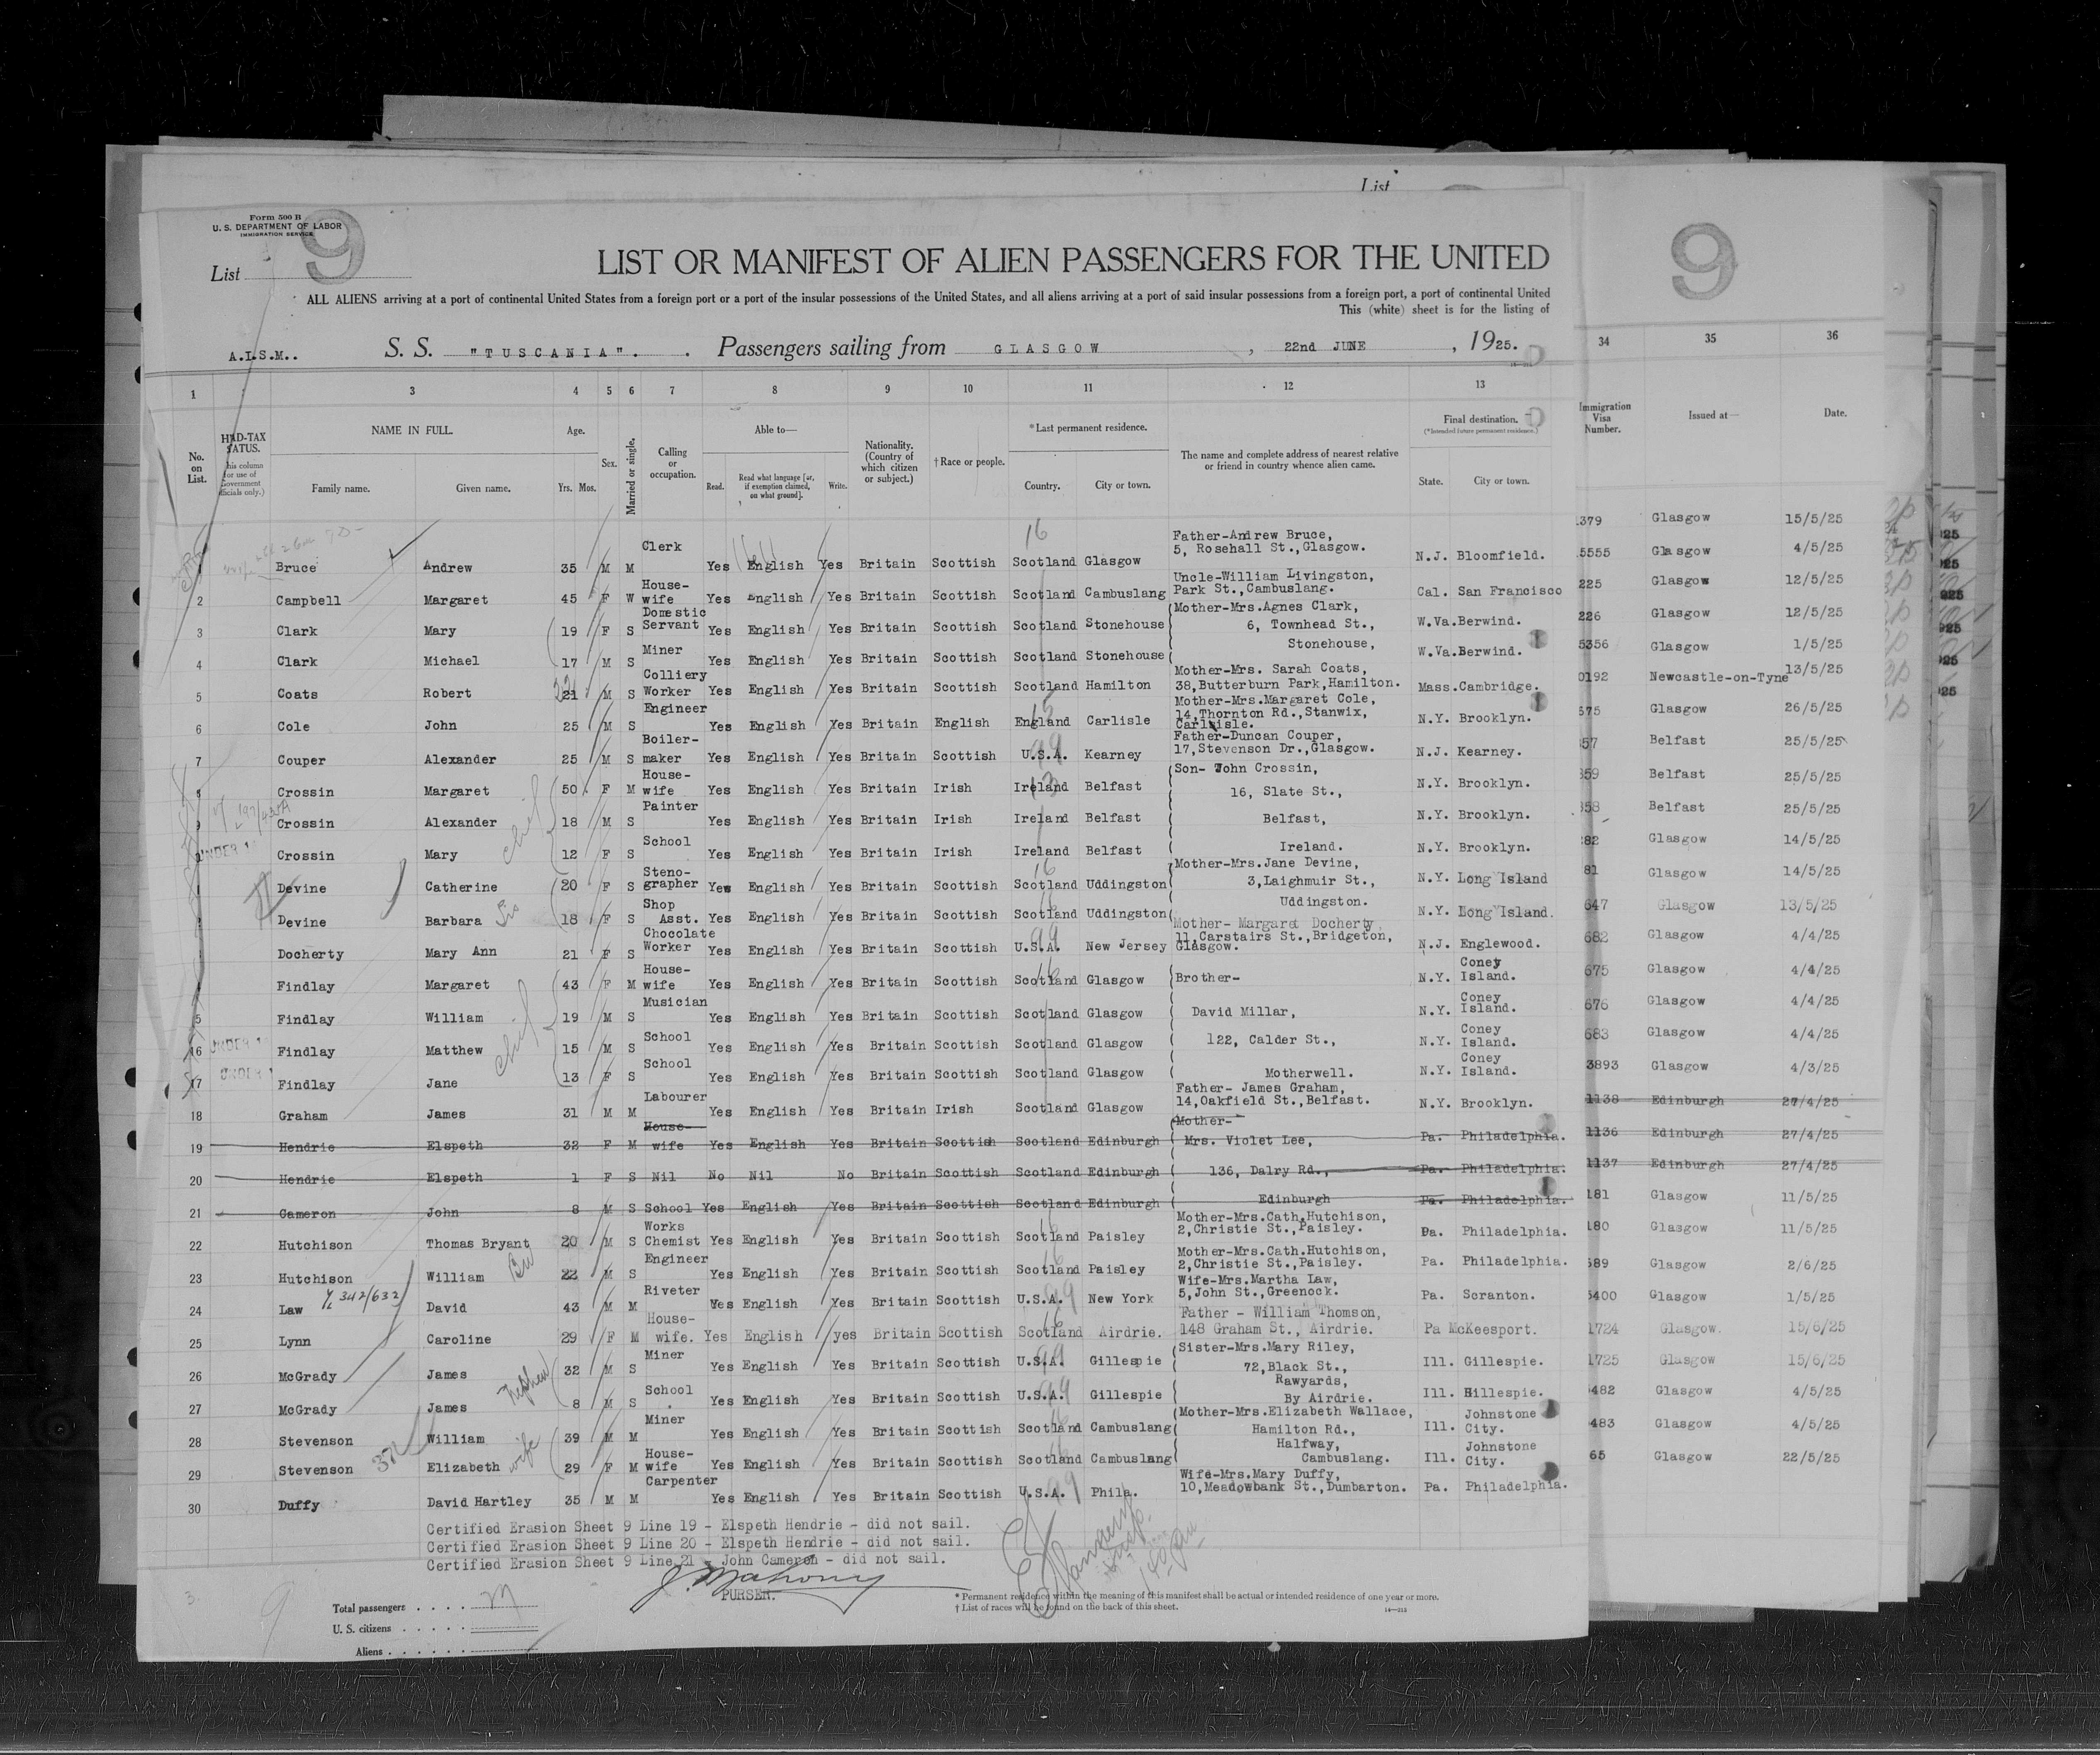 List
Form 500 B
U. S. DEPARTMENT OF LABOR
IMMIGRATION SERVICE
List 9
LIST OR MANIFEST OF ALIEN PASSENGERS FOR THE UNITED
9
ALL ALIENS arriving at a port of continental United States from a foreign port or a port of the insular possessions of the United States, and all aliens arriving at a port of said insular possessions from a foreign port, a port of continental United
This (white) sheet is for the listing of
A.I.S.M.. S. S. "TUSCANIA". Passengers sailing from GLASGOW, 22nd JUNE, 1925.
1 3 4 5 6 7 8 9 10 11 12 13 34 35 36
No. on List. HEAD-TAX STATUS. NAME IN FULL. Age. Sex. Married or single. Calling or occupation. Able to— Nationality. (Country of which citizen or subject.) †Race or people. *Last permanent residence. The name and complete address of nearest relative or friend in country whence alien came. Final destination. (*Intended future permanent residence.) Immigration Visa Number. Issued at— Date.
Family name. Given name. Yrs. Mos. Read. Read what language [or, if exemption claimed, on what ground]. Write. Country. City or town. State. City or town.
Bruce Andrew 35 M M Clerk Yes English Yes Britain Scottish Scotland Glasgow Father-Andrew Bruce, 5, Rosehall St., Glasgow. N.J. Bloomfield.
2 Campbell Margaret 45 F W House-wife Yes English Yes Britain Scottish Scotland Cambuslang Uncle-William Livingston, Park St., Cambuslang. Cal. San Francisco
3 Clark Mary 19 F S Domestic Servant Yes English Yes Britain Scottish Scotland Stonehouse Mother-Mrs.Agnes Clark, 6, Townhead St., W.Va. Berwind.
4 Clark Michael 17 M S Miner Yes English Yes Britain Scottish Scotland Stonehouse Stonehouse, W.Va. Berwind.
5 Coats Robert 21 M S Colliery Worker Yes English Yes Britain Scottish Scotland Hamilton Mother-Mrs. Sarah Coats, 38, Butterburn Park, Hamilton. Mass. Cambridge.
6 Cole John 25 M S Engineer Yes English Yes Britain English England Carlisle Mother-Mrs.Margaret Cole, 14, Thornton Rd., Stanwix, Carlisle. N.Y. Brooklyn.
7 Couper Alexander 25 M S Boiler-maker Yes English Yes Britain Scottish U.S.A. Kearney Father-Duncan Couper, 17, Stevenson Dr., Glasgow. N.J. Kearney.
Crossin Margaret 50 F M House-wife Yes English Yes Britain Irish Ireland Belfast Son- John Crossin, 16, Slate St., N.Y. Brooklyn.
Crossin Alexander 18 M S Painter Yes English Yes Britain Irish Ireland Belfast Belfast, N.Y. Brooklyn.
UNDER Crossin Mary 12 F S School Yes English Yes Britain Irish Ireland Belfast Ireland. N.Y. Brooklyn.
Devine Catherine 20 F S Steno-grapher Yes English Yes Britain Scottish Scotland Uddingston Mother-Mrs.Jane Devine, 3, Laighmuir St., N.Y. Long Island
Devine Barbara Sis 18 F S Shop Asst. Yes English Yes Britain Scottish Scotland Uddingston Uddingston. N.Y. Long Island.
Docherty Mary Ann 21 F S Chocolate Worker Yes English Yes Britain Scottish U.S.A. New Jersey Mother- Margaret Docherty, 11, Carstairs St., Bridgeton, Glasgow. N.J. Englewood.
Findlay Margaret 43 F M House-wife Yes English Yes Britain Scottish Scotland Glasgow Brother- N.Y. Coney Island.
5 Findlay William 19 M S Musician Yes English Yes Britain Scottish Scotland Glasgow David Millar, N.Y. Coney Island.
16 UNDER Findlay Matthew 15 M S School Yes English Yes Britain Scottish Scotland Glasgow 122, Calder St., N.Y. Coney Island.
17 UNDER Findlay Jane 13 F S School Yes English Yes Britain Scottish Scotland Glasgow Motherwell. N.Y. Coney Island.
18 Graham James 31 M M Labourer Yes English Yes Britain Irish Scotland Glasgow Father- James Graham, 14, Oakfield St., Belfast. N.Y. Brooklyn.
19 Hendrie Elspeth 32 F M House-wife Yes English Yes Britain Scottish Scotland Edinburgh Mother- Mrs. Violet Lee, Pa. Philadelphia.
20 Hendrie Elspeth 1 F S Nil No Nil No Britain Scottish Scotland Edinburgh 136, Dalry Rd., Pa. Philadelphia.
21 Cameron John 8 M S School Yes English Yes Britain Scottish Scotland Edinburgh Edinburgh Pa. Philadelphia.
22 Hutchison Thomas Bryant 20 M S Works Chemist Yes English Yes Britain Scottish Scotland Paisley Mother-Mrs.Cath.Hutchison, 2, Christie St., Paisley. Pa. Philadelphia.
23 Hutchison William 22 M S Engineer Yes English Yes Britain Scottish Scotland Paisley Mother-Mrs.Cath.Hutchison, 2, Christie St., Paisley. Pa. Philadelphia.
24 Law David 43 M M Riveter Yes English Yes Britain Scottish U.S.A. New York Wife-Mrs.Martha Law, 5, John St., Greenock. Pa. Scranton.
25 Lynn Caroline 29 F M House-wife. Yes English yes Britain Scottish Scotland Airdrie. Father - William Thomson, 148 Graham St., Airdrie. Pa McKeesport.
26 McGrady James 32 M S Miner Yes English Yes Britain Scottish U.S.A. Gillespie Sister-Mrs.Mary Riley, 72, Black St., Ill. Gillespie.
27 McGrady James nephew 8 M S School Yes English Yes Britain Scottish U.S.A. Gillespie Rawyards, By Airdrie. Ill. Hillespie.
28 Stevenson William 39 M M Miner Yes English Yes Britain Scottish Scotland Cambuslang Mother-Mrs.Elizabeth Wallace, Hamilton Rd., Ill. Johnstone City.
29 Stevenson Elizabeth wife 29 F M House-wife Yes English Yes Britain Scottish Scotland Cambuslang Halfway, Cambuslang. Ill. Johnstone City.
30 Duffy David Hartley 35 M M Carpenter Yes English Yes Britain Scottish U.S.A. Phila. Wife-Mrs.Mary Duffy, 10, Meadowbank St., Dumbarton. Pa. Philadelphia.
379 Glasgow 15/5/25
5555 Glasgow 4/5/25
225 Glasgow 12/5/25
226 Glasgow 12/5/25
5356 Glasgow 1/5/25
0192 Newcastle-on-Tyne 13/5/25
675 Glasgow 26/5/25
57 Belfast 25/5/25
359 Belfast 25/5/25
358 Belfast 25/5/25
82 Glasgow 14/5/25
81 Glasgow 14/5/25
647 Glasgow 13/5/25
682 Glasgow 4/4/25
675 Glasgow 4/4/25
676 Glasgow 4/4/25
683 Glasgow 4/4/25
3893 Glasgow 4/3/25
1138 Edinburgh 27/4/25
1136 Edinburgh 27/4/25
1137 Edinburgh 27/4/25
181 Glasgow 11/5/25
180 Glasgow 11/5/25
589 Glasgow 2/6/25
5400 Glasgow 1/5/25
1724 Glasgow. 15/6/25
1725 Glasgow 15/6/25
482 Glasgow 4/5/25
483 Glasgow 4/5/25
65 Glasgow 22/5/25
Certified Erasion Sheet 9 Line 19 - Elspeth Hendrie - did not sail.
Certified Erasion Sheet 9 Line 20 - Elspeth Hendrie - did not sail.
Certified Erasion Sheet 9 Line 21 - John Cameron - did not sail.
J. Mahony
PURSER.
* Permanent residence within the meaning of this manifest shall be actual or intended residence of one year or more.
† List of races will be found on the back of this sheet.
Total passengers
U. S. citizens
Aliens